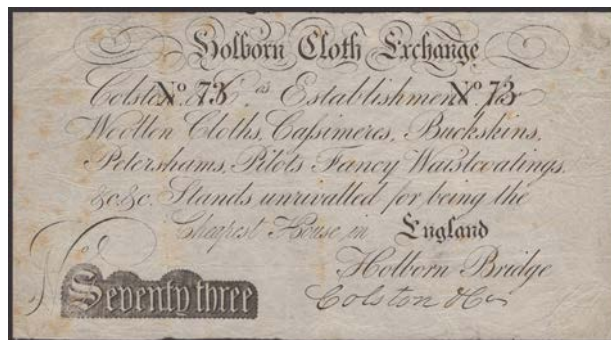 Holborn Cloth Exchange
Colston & Co's Establishment for
No 73 No 73
Woollen Cloths, Cassimeres, Buckskins,
Petershams, Pilots Fancy Waistcoatings,
&c &c. Stands unrivalled for being the
Cheapest House, in England
Holborn Bridge
No Seventy three Colston & Co